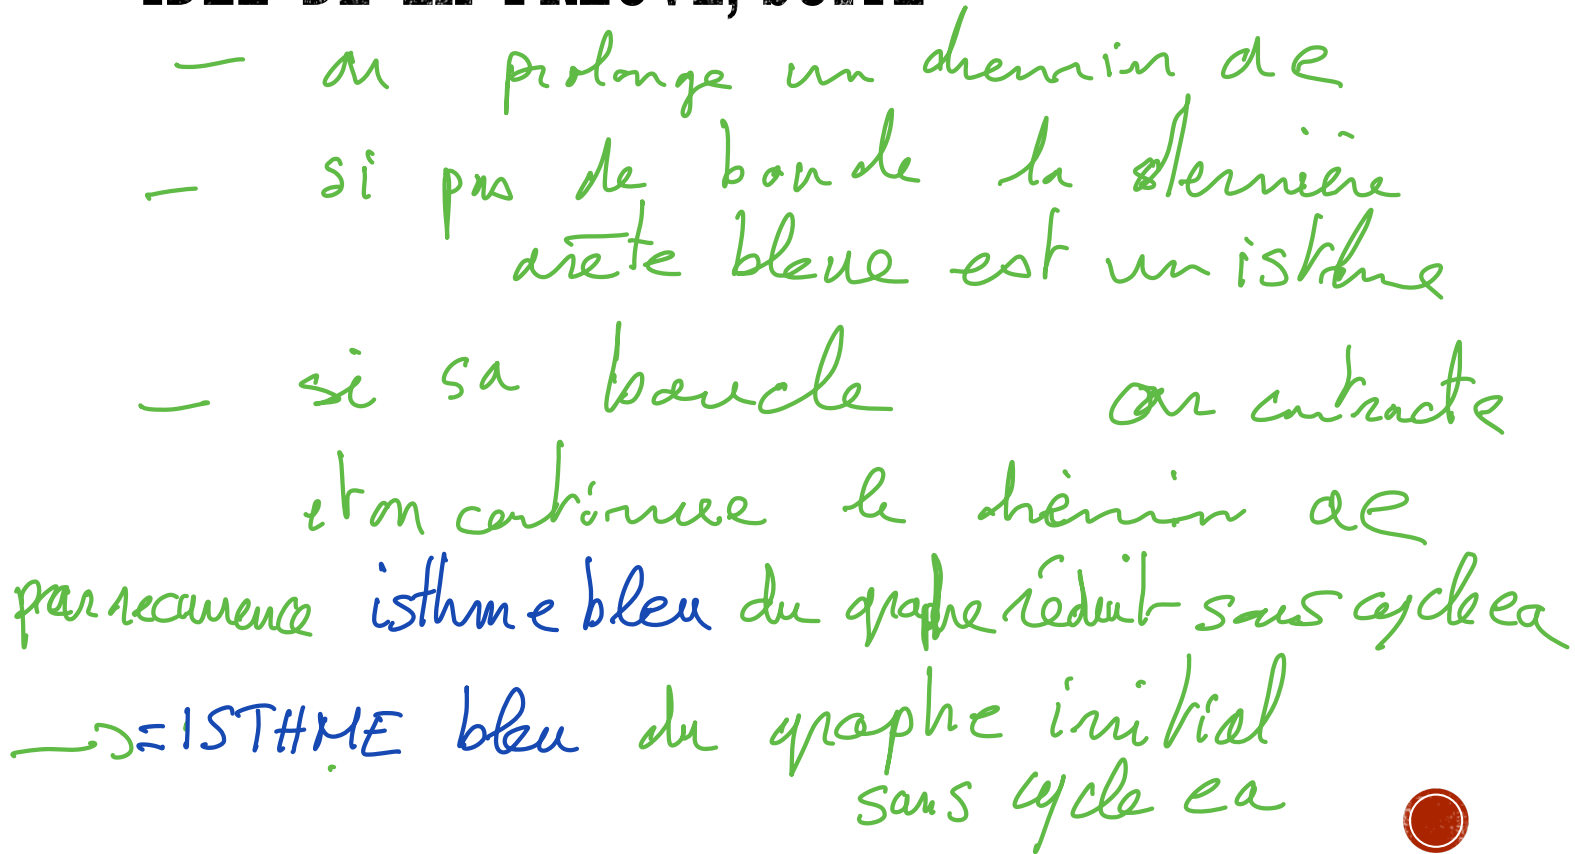 IDÉE DE LA PREUVE, SUITE
— on prolonge un chemin de
— si pas de boucle la dernière
arête bleue est un isthme
— si sa boucle on contracte
et on continue le chemin ae
par recurrence isthme bleu du graphe réduit sans cycle ea
→ = ISTHME bleu du graphe initial
sans cycle ea